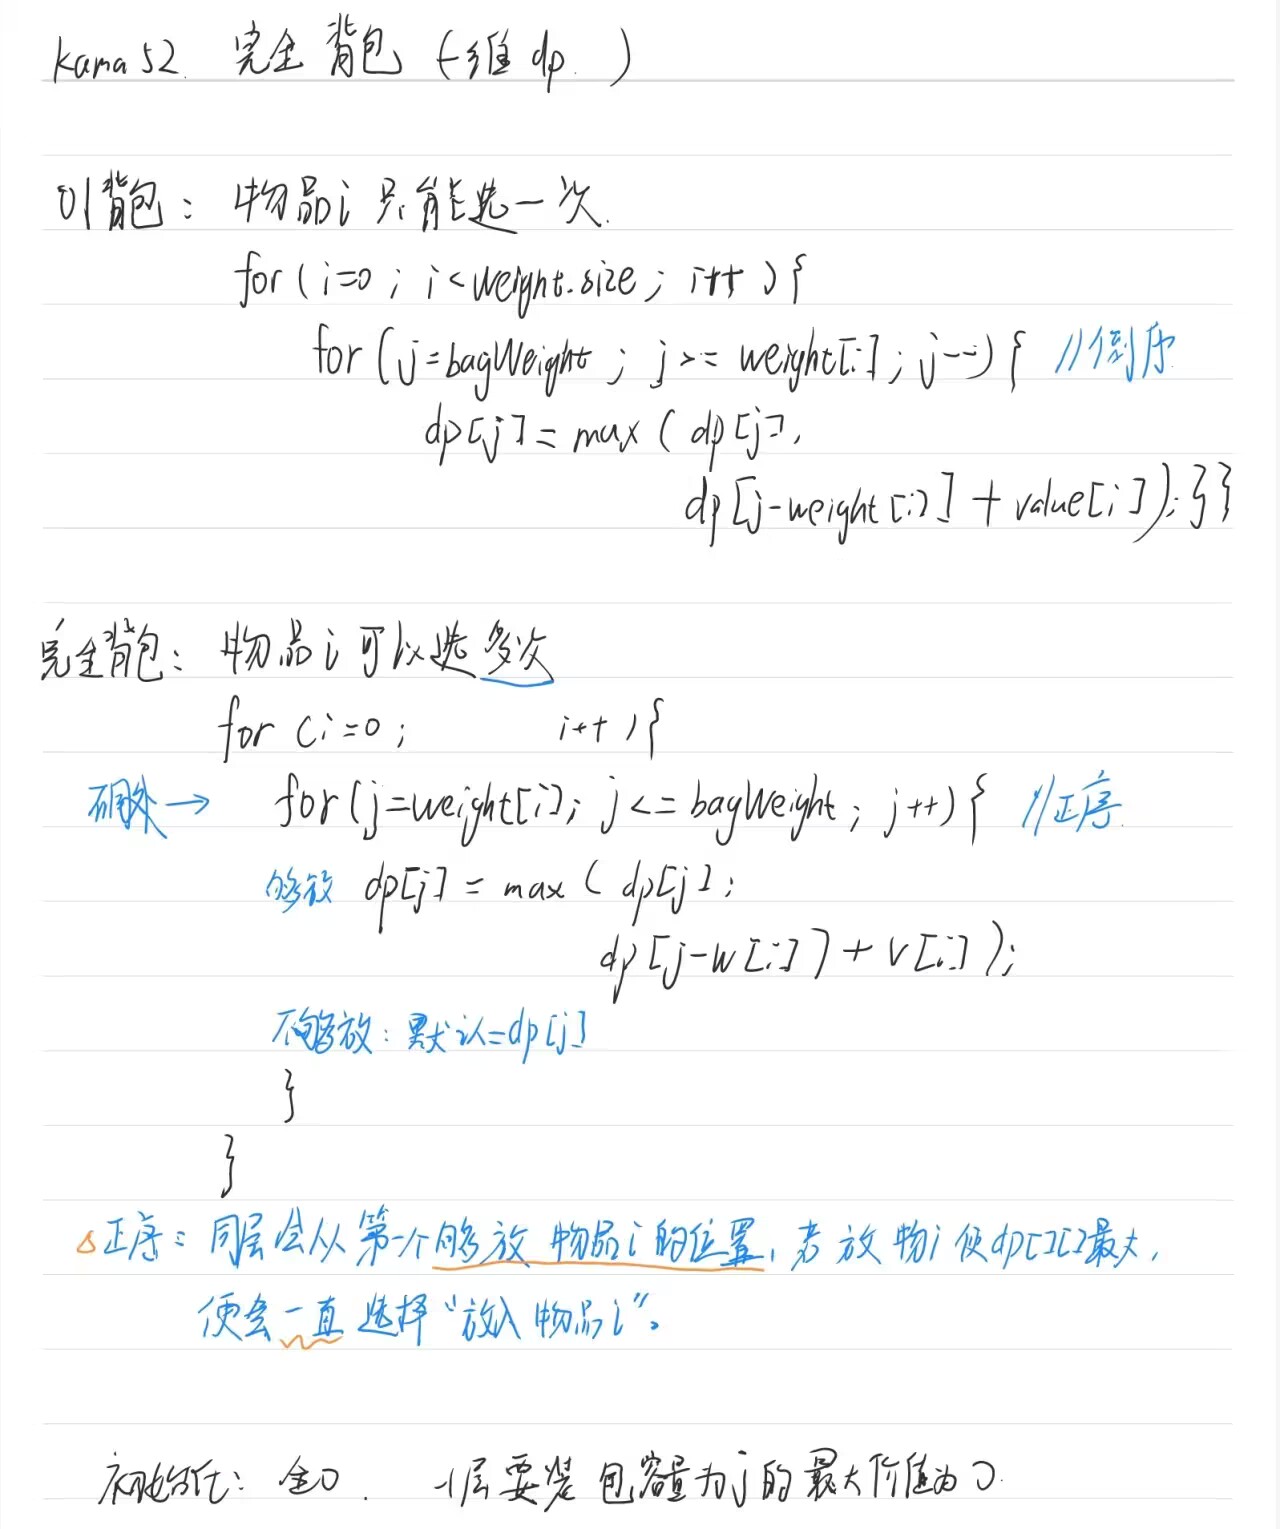 kama 52. 完全背包 (一维 dp.)
01背包: 物品i 只能选一次.
for (i=0; i<weight.size; i++){
for (j=bagWeight; j>=weight[i]; j--){ //倒序
dp[j]=max(dp[j],
dp[j-weight[i]]+value[i]);}}
完全背包: 物品i可以选多次
for (i=0; i++){
不同处→ for(j=weight[i]; j<=bagWeight; j++){ //正序.
够放 dp[j]=max(dp[j];
dp[j-w[i]]+v[i]);
不够放: 默认=dp[j]
}
}
△正序: 同层会从第一个够放物品i的位置, 若放物i使dp[][]最大,
便会一直选择“放入物品i”。
初始化: 全0. -1层要装包容量为j的最大价值为0.